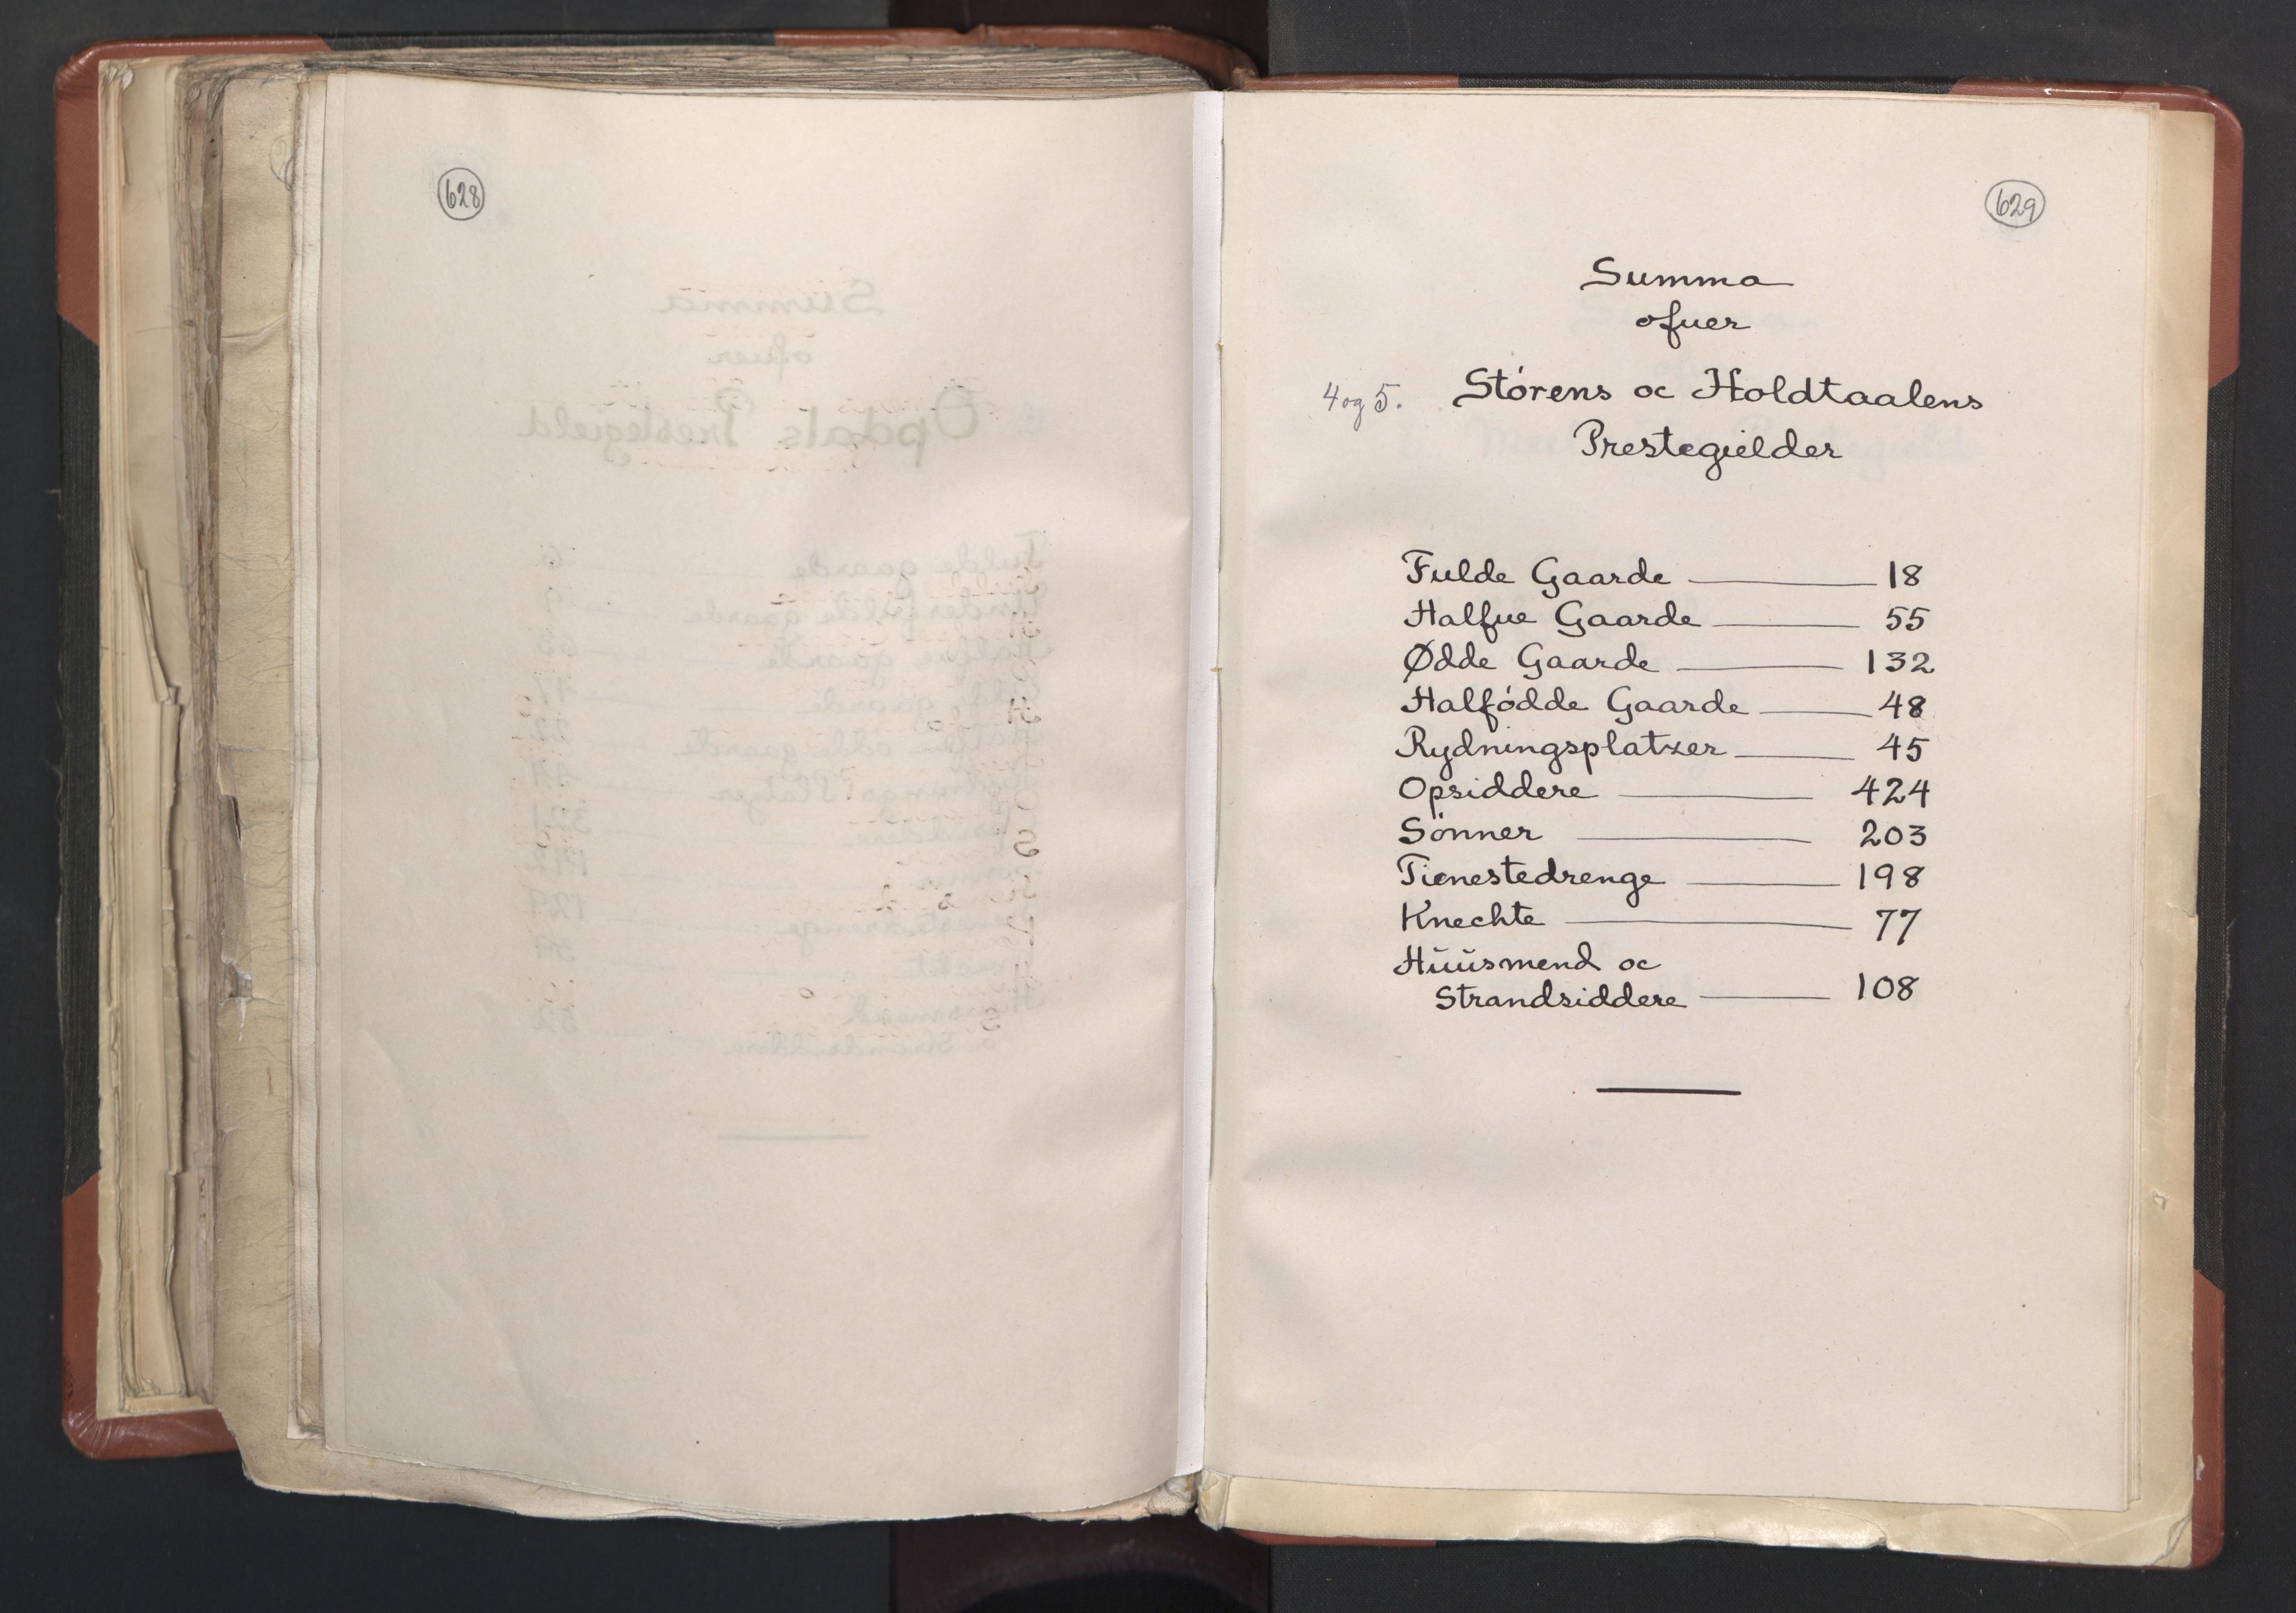 628
629
Summa
ofuer
4 og 5. Störens oc Holdtaalens
Prestegielder
Fulde Gaarde 18
Halfue Gaarde 55
Ødde Gaarde 132
Halfödde Gaarde 48
Rydningsplatzer 45
Opsiddere 424
Sönner 203
Tienestedrenge 198
Knechte 77
Huusmend oc
Strandsiddere 108